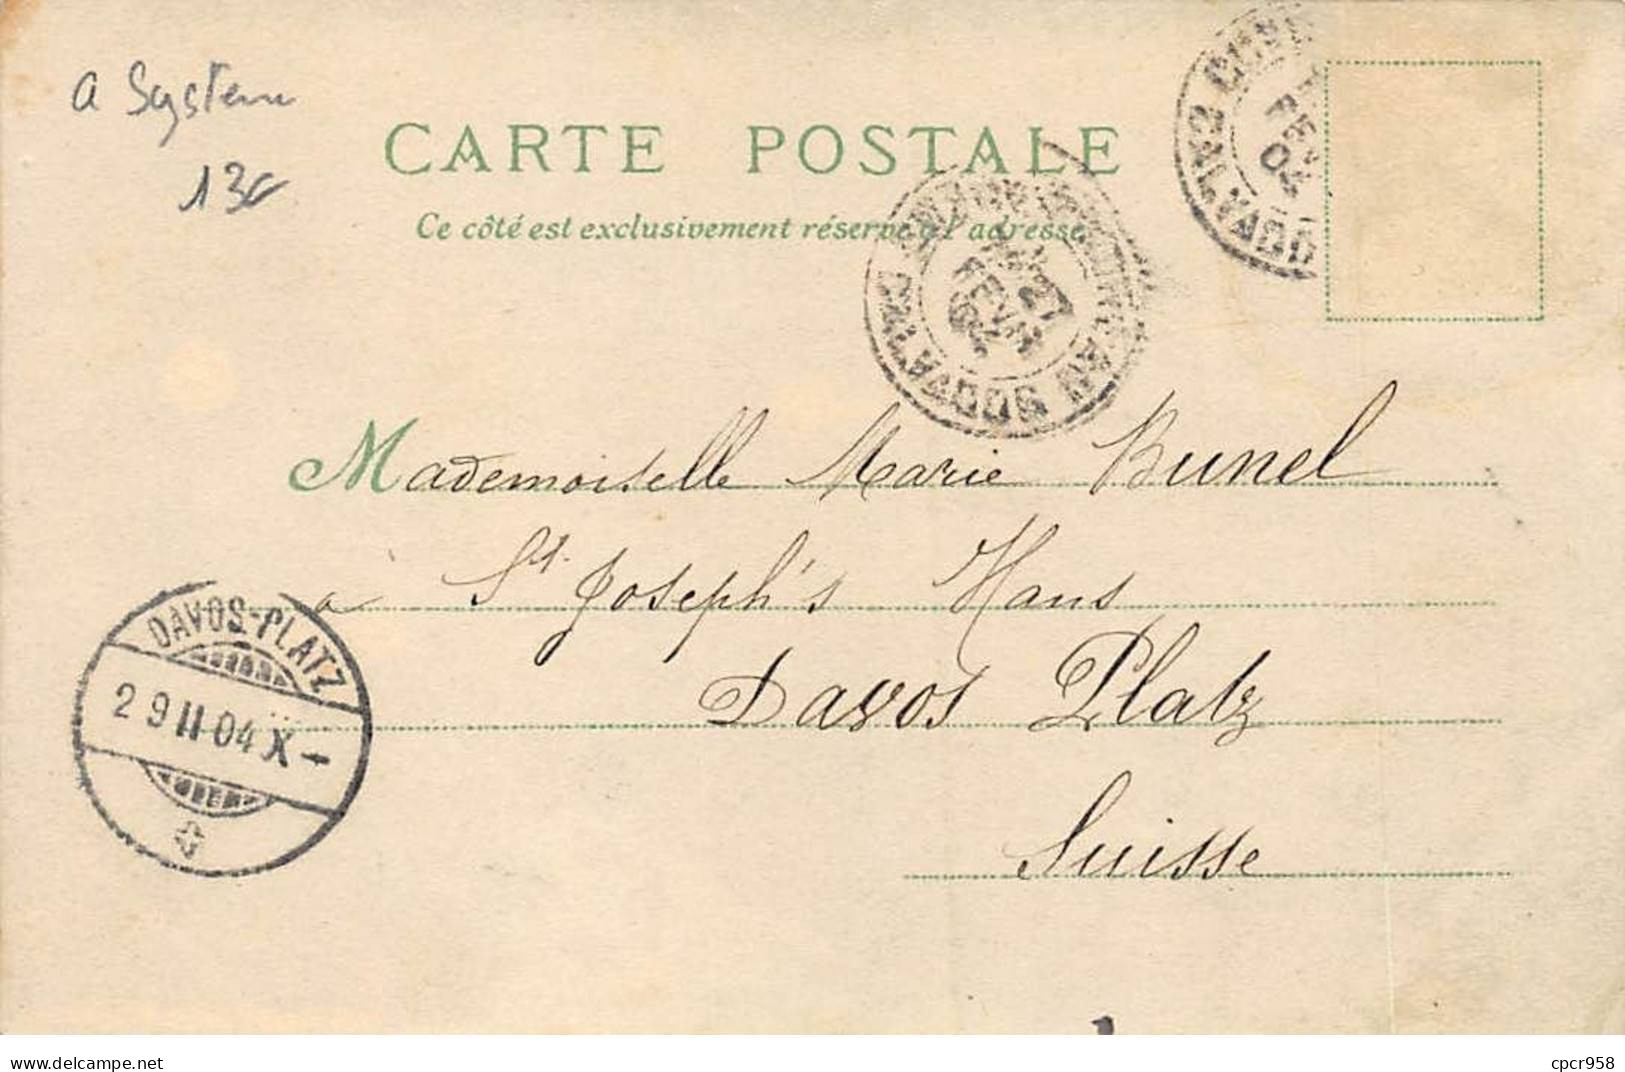 a System
13€
CARTE POSTALE
Ce côté est exclusivement réservé à l'adresse
27
FEVR
04
CALVADOS
FEVR
04
CALVADOS
Mademoiselle Marie Bunel
à St. Joseph's Haus
Davos Platz
Suisse
DAVOS-PLATZ
29 II 04 X-
delcampe.net
cpcr958